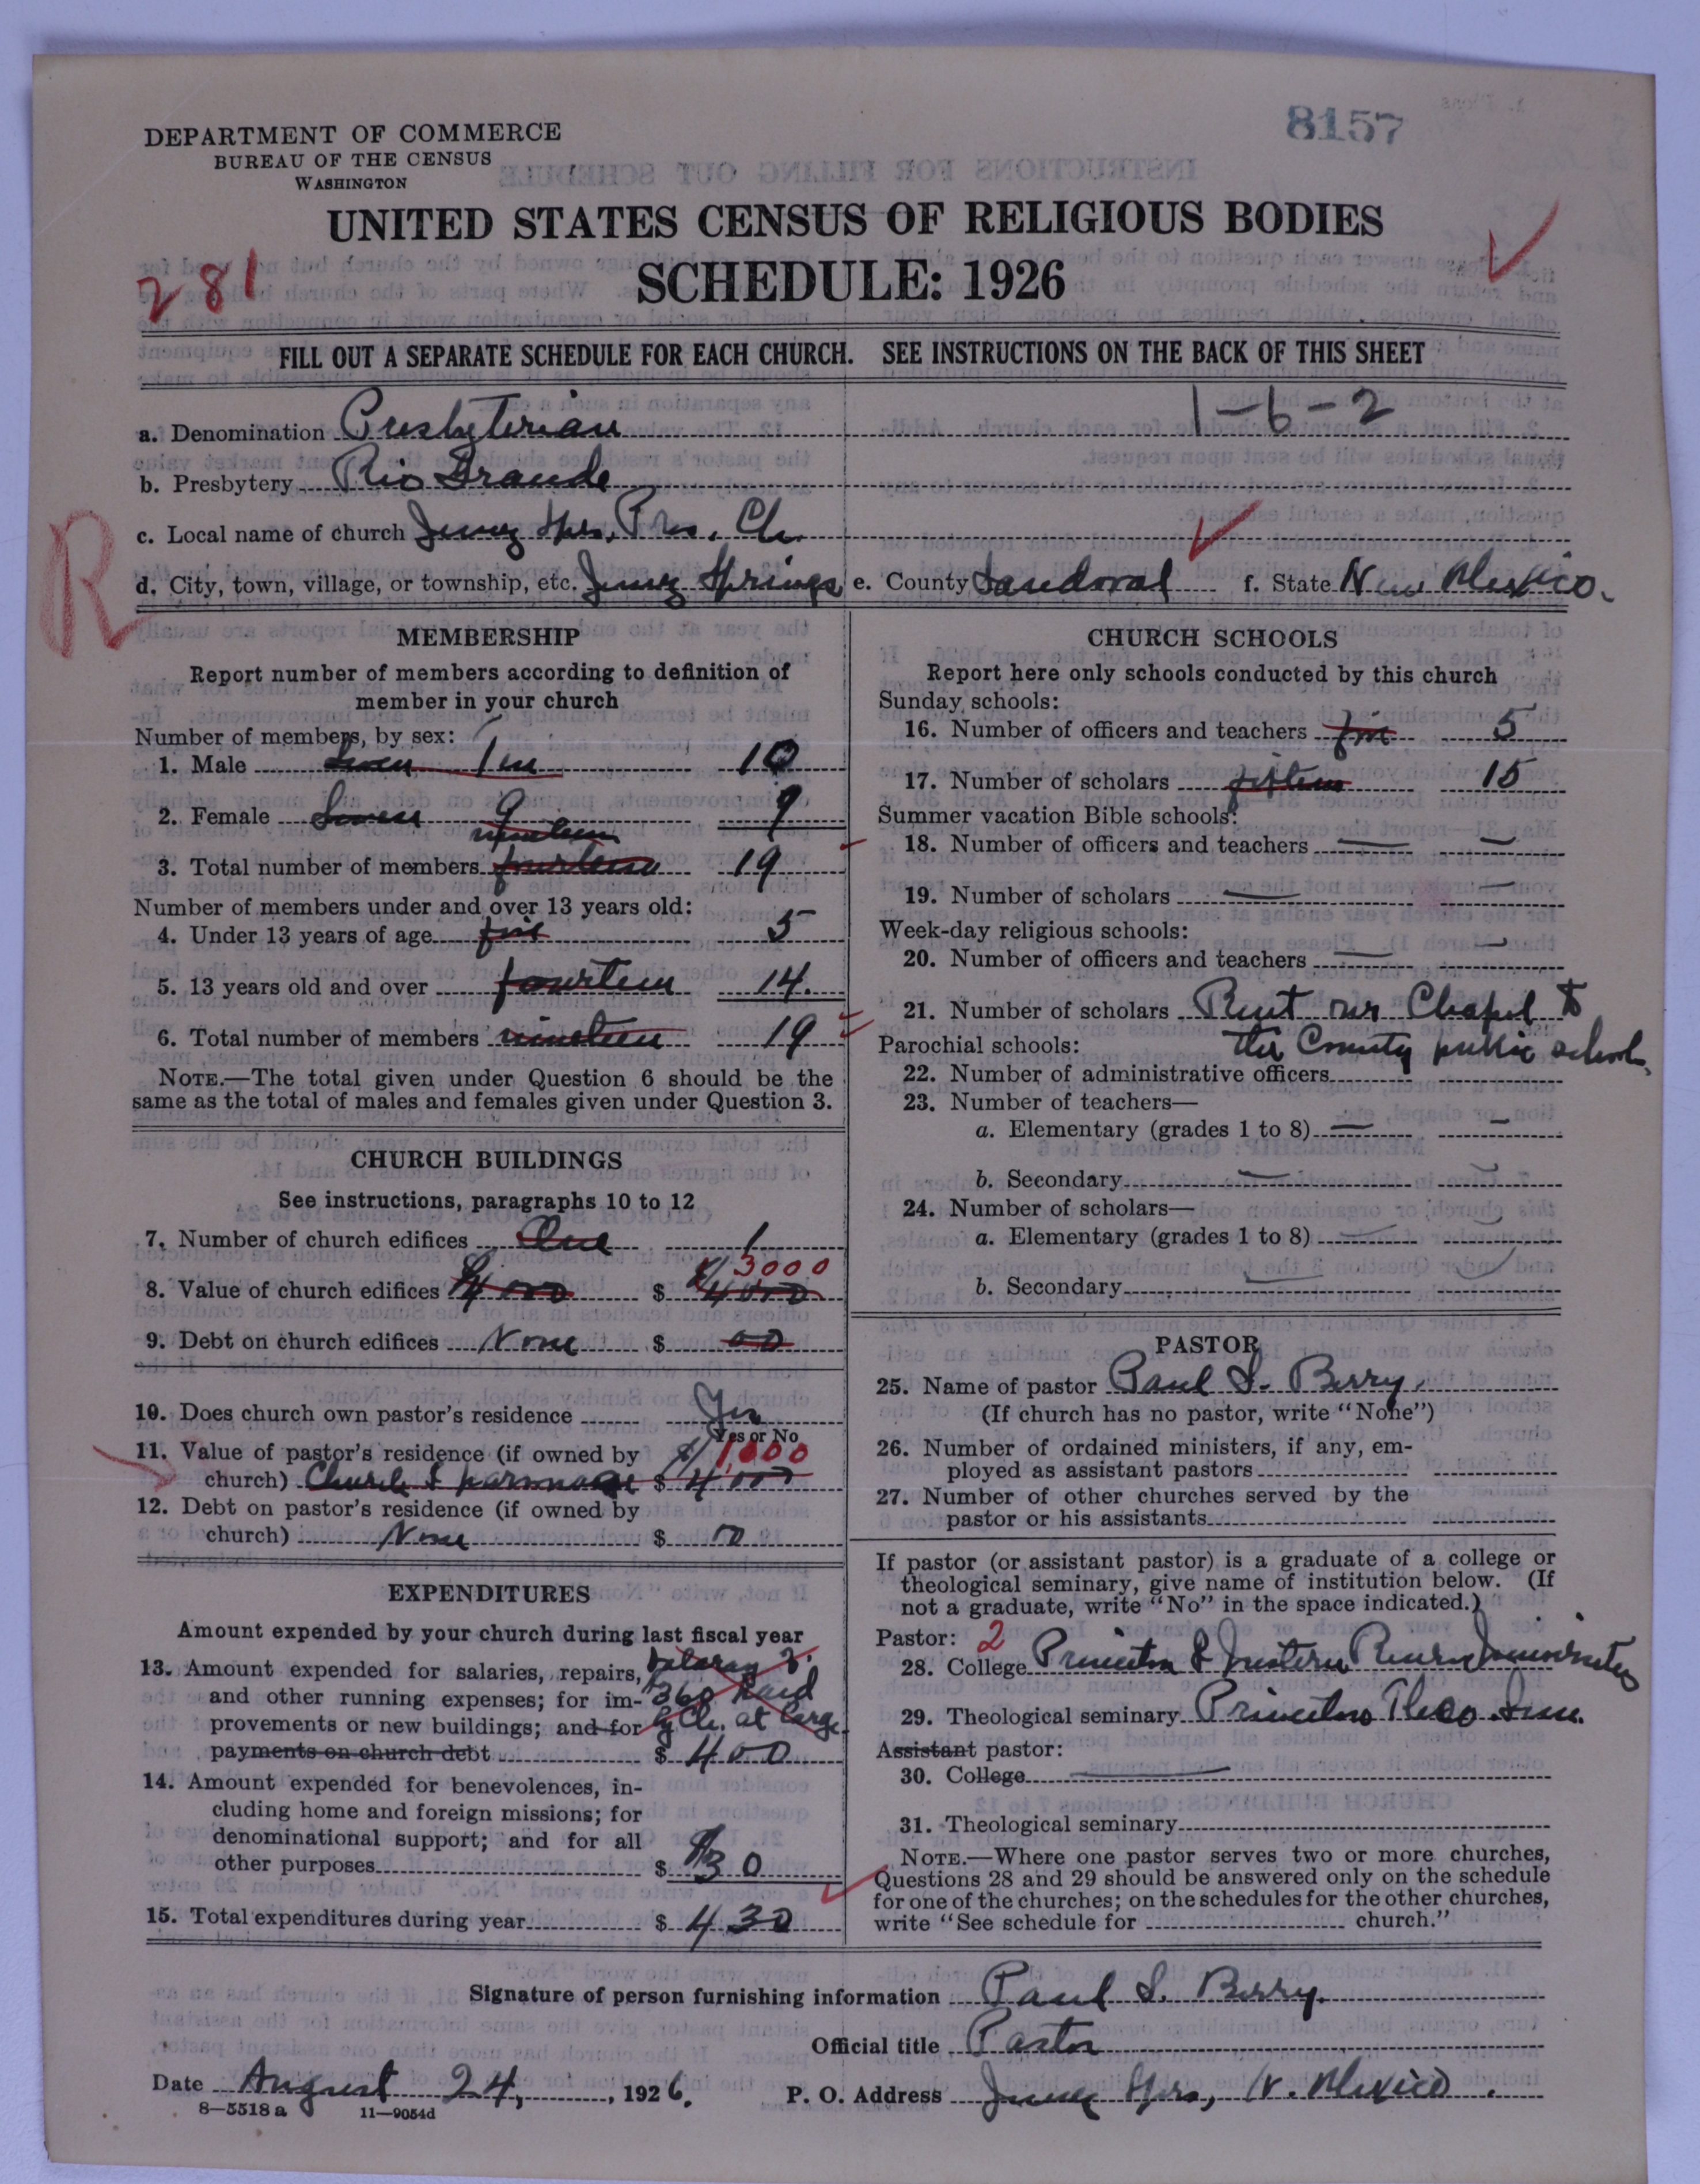 8157
DEPARTMENT OF COMMERCE
BUREAU OF THE CENSUS
WASHINGTON
UNITED STATES CENSUS OF RELIGIOUS BODIES
SCHEDULE: 1926
281
FILL OUT A SEPARATE SCHEDULE FOR EACH CHURCH. SEE INSTRUCTIONS ON THE BACK OF THIS SHEET
1-6-2
a. Denomination Presbyterian
b. Presbytery Rio Grande
R
c. Local name of church Jemez Spgs. Pres. Ch.
d. City, town, village, or township, etc. Jemez Springs e. County Sandoval f. State New Mexico.
MEMBERSHIP
Report number of members according to definition of
member in your church
Number of members, by sex:
1. Male Seven Ten 10
2. Female Seven 9 9
nineteen
3. Total number of members fourteen 19
Number of members under and over 13 years old:
4. Under 13 years of age five 5
5. 13 years old and over fourteen 14.
6. Total number of members nineteen 19
NOTE.—The total given under Question 6 should be the
same as the total of males and females given under Question 3.
CHURCH BUILDINGS
See instructions, paragraphs 10 to 12
7. Number of church edifices One 1
3000
8. Value of church edifices $4000 $ $4000
9. Debt on church edifices None $ 00
10. Does church own pastor's residence Yes
Yes or No
11. Value of pastor's residence (if owned by 1,000
church) Church & parsonage $ 4000
12. Debt on pastor's residence (if owned by
church) None $ 00
EXPENDITURES
Amount expended by your church during last fiscal year
13. Amount expended for salaries, repairs, Salary
and other running expenses; for im- $360 paid
provements or new buildings; and for by Ch. at large
payments on church debt $ 400
14. Amount expended for benevolences, in-
cluding home and foreign missions; for
denominational support; and for all
other purposes $ $30
15. Total expenditures during year $ 430
CHURCH SCHOOLS
Report here only schools conducted by this church
Sunday schools:
16. Number of officers and teachers five 5
17. Number of scholars fifteen 15
Summer vacation Bible schools:
18. Number of officers and teachers — —
19. Number of scholars — —
Week-day religious schools:
20. Number of officers and teachers — —
21. Number of scholars Rent our Chapel to
Parochial schools: the County public school.
22. Number of administrative officers
23. Number of teachers—
a. Elementary (grades 1 to 8) — —
b. Secondary — —
24. Number of scholars—
a. Elementary (grades 1 to 8) — —
b. Secondary — —
PASTOR
25. Name of pastor Paul S. Berry.
(If church has no pastor, write "None")
26. Number of ordained ministers, if any, em-
ployed as assistant pastors
27. Number of other churches served by the
pastor or his assistants
If pastor (or assistant pastor) is a graduate of a college or
theological seminary, give name of institution below. (If
not a graduate, write "No" in the space indicated.)
Pastor: 2
28. College Princeton & Western Reserve Universities
29. Theological seminary Princeton Theo. Sem.
Assistant pastor:
30. College —
31. Theological seminary
NOTE.—Where one pastor serves two or more churches,
Questions 28 and 29 should be answered only on the schedule
for one of the churches; on the schedules for the other churches,
write "See schedule for church."
Signature of person furnishing information Paul S. Berry.
Official title Pastor
Date August 24, 1926. P. O. Address Jemez Spgs, N. Mexico.
8—5518a 11—9054d